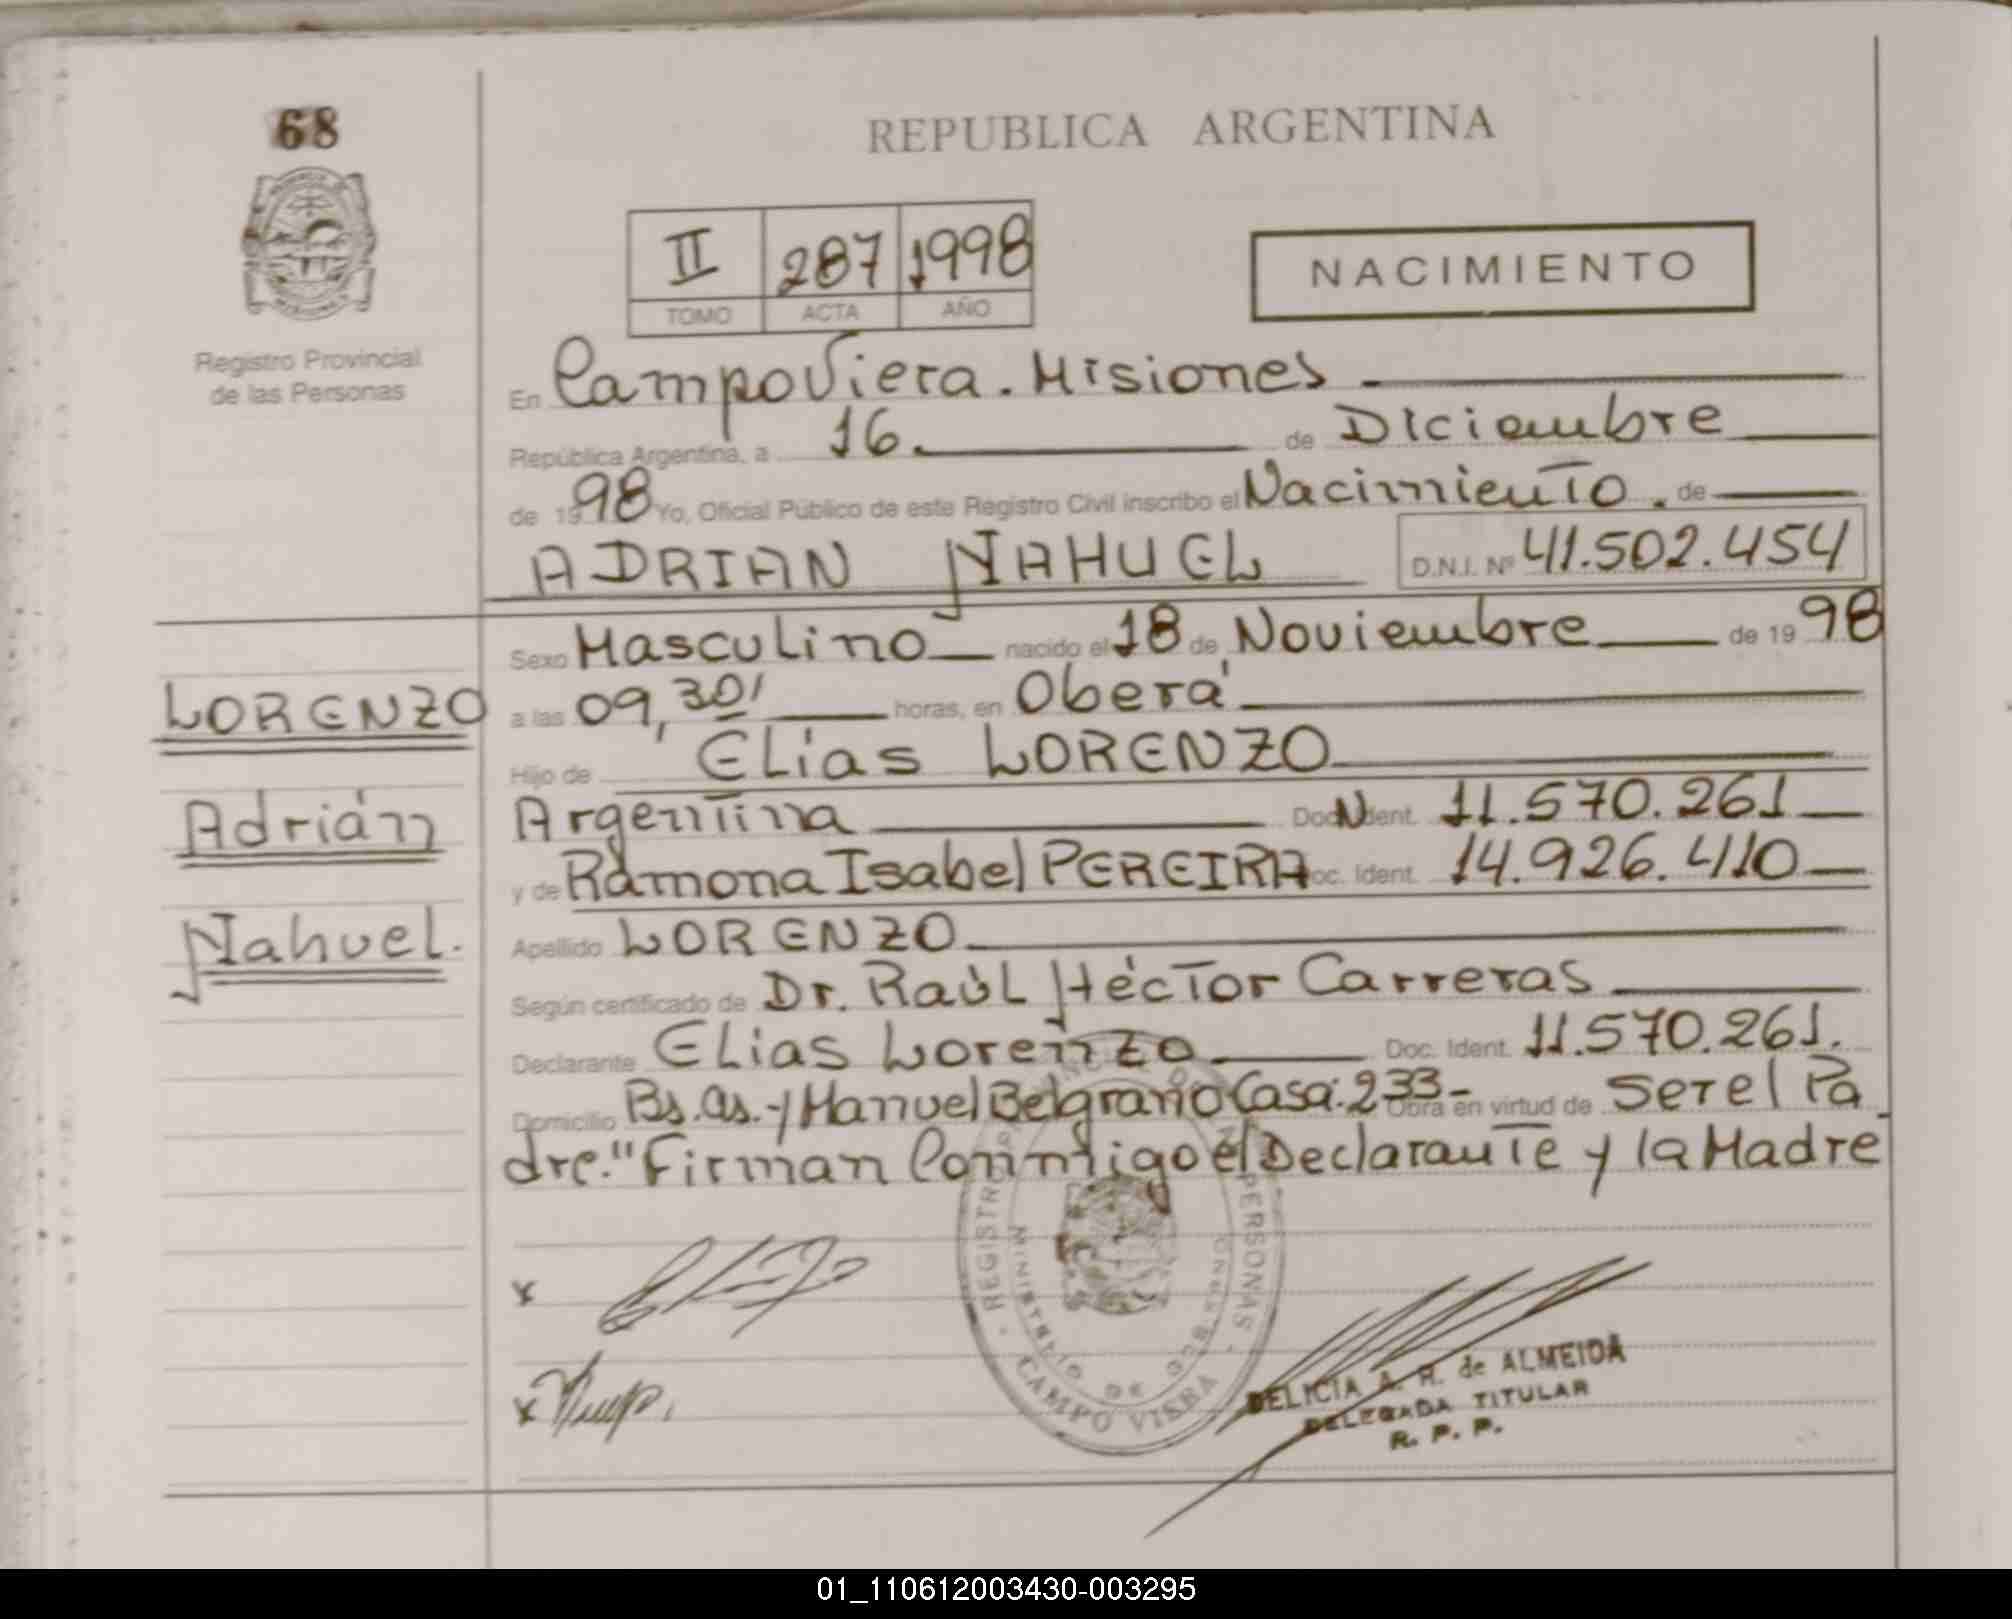 68
REPUBLICA ARGENTINA
II 287 1998
TOMO ACTA AÑO
NACIMIENTO
Registro Provincial
de las Personas
En Campo Viera. Misiones
República Argentina, a 16. de Diciembre
de 1998 Yo, Oficial Público de este Registro Civil inscribo el Nacimiento. de
ADRIAN NAHUEL D.N.I. Nº 41.502.454
Sexo Masculino nacido el 18 de Noviembre de 1998
LORENZO
a las 09,30' horas, en Oberá
Hijo de Elías LORENZO
Adrián
Argentina Doc. Ident. N 11.570.261
y de Ramona Isabel PEREIRA Doc. Ident. 14.926.410
Nahuel.
Apellido LORENZO
Según certificado de Dr. Raúl Héctor Carreras
Declarante Elias Lorenzo Doc. Ident. 11.570.261.
Domicilio Bs. as. y Manuel Belgrano Casa: 233- Obra en virtud de Ser el Pa
dre." Firman Conmigo el Declarante y la Madre
REGISTRO PERSONAS
MINISTERIO DE GOBIERNO
CAMPO VIERA
x
x
DELICIA A. R. de ALMEIDA
DELEGADA TITULAR
R. P. P.
01_110612003430-003295